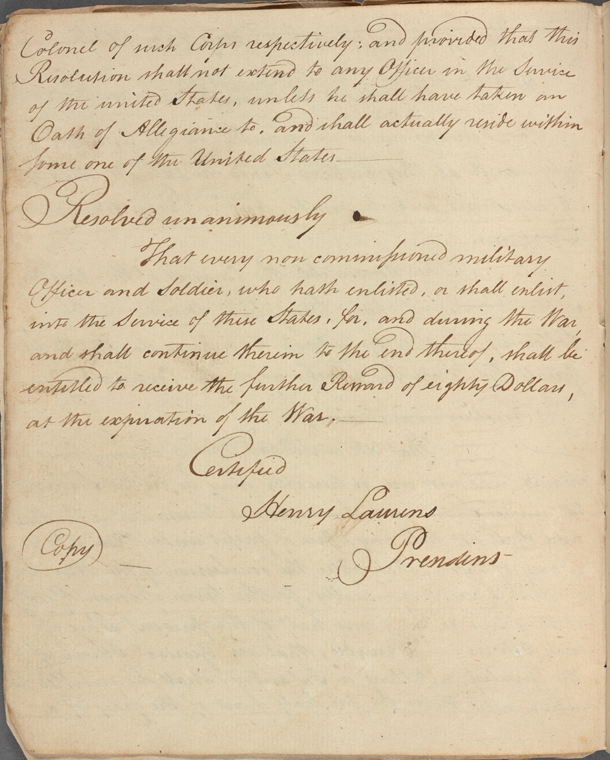 Colonel of such Corps respectively; and provided that this
Resolution shall not extend to any Officer in the Service
of the united States, unless he shall have taken an
Oath of Allegiance to, and shall actually reside within
some one of the United States
Resolved unanimously
That every non commissioned military
Officer and Soldier, who hath enlisted, or shall enlist,
into the Service of these States, for, and during the War,
and shall continue therein to the end thereof, shall be
entitled to receive the further Reward of eighty Dollars,
at the expiration of the War.
Certified
Henry Laurens
Copy